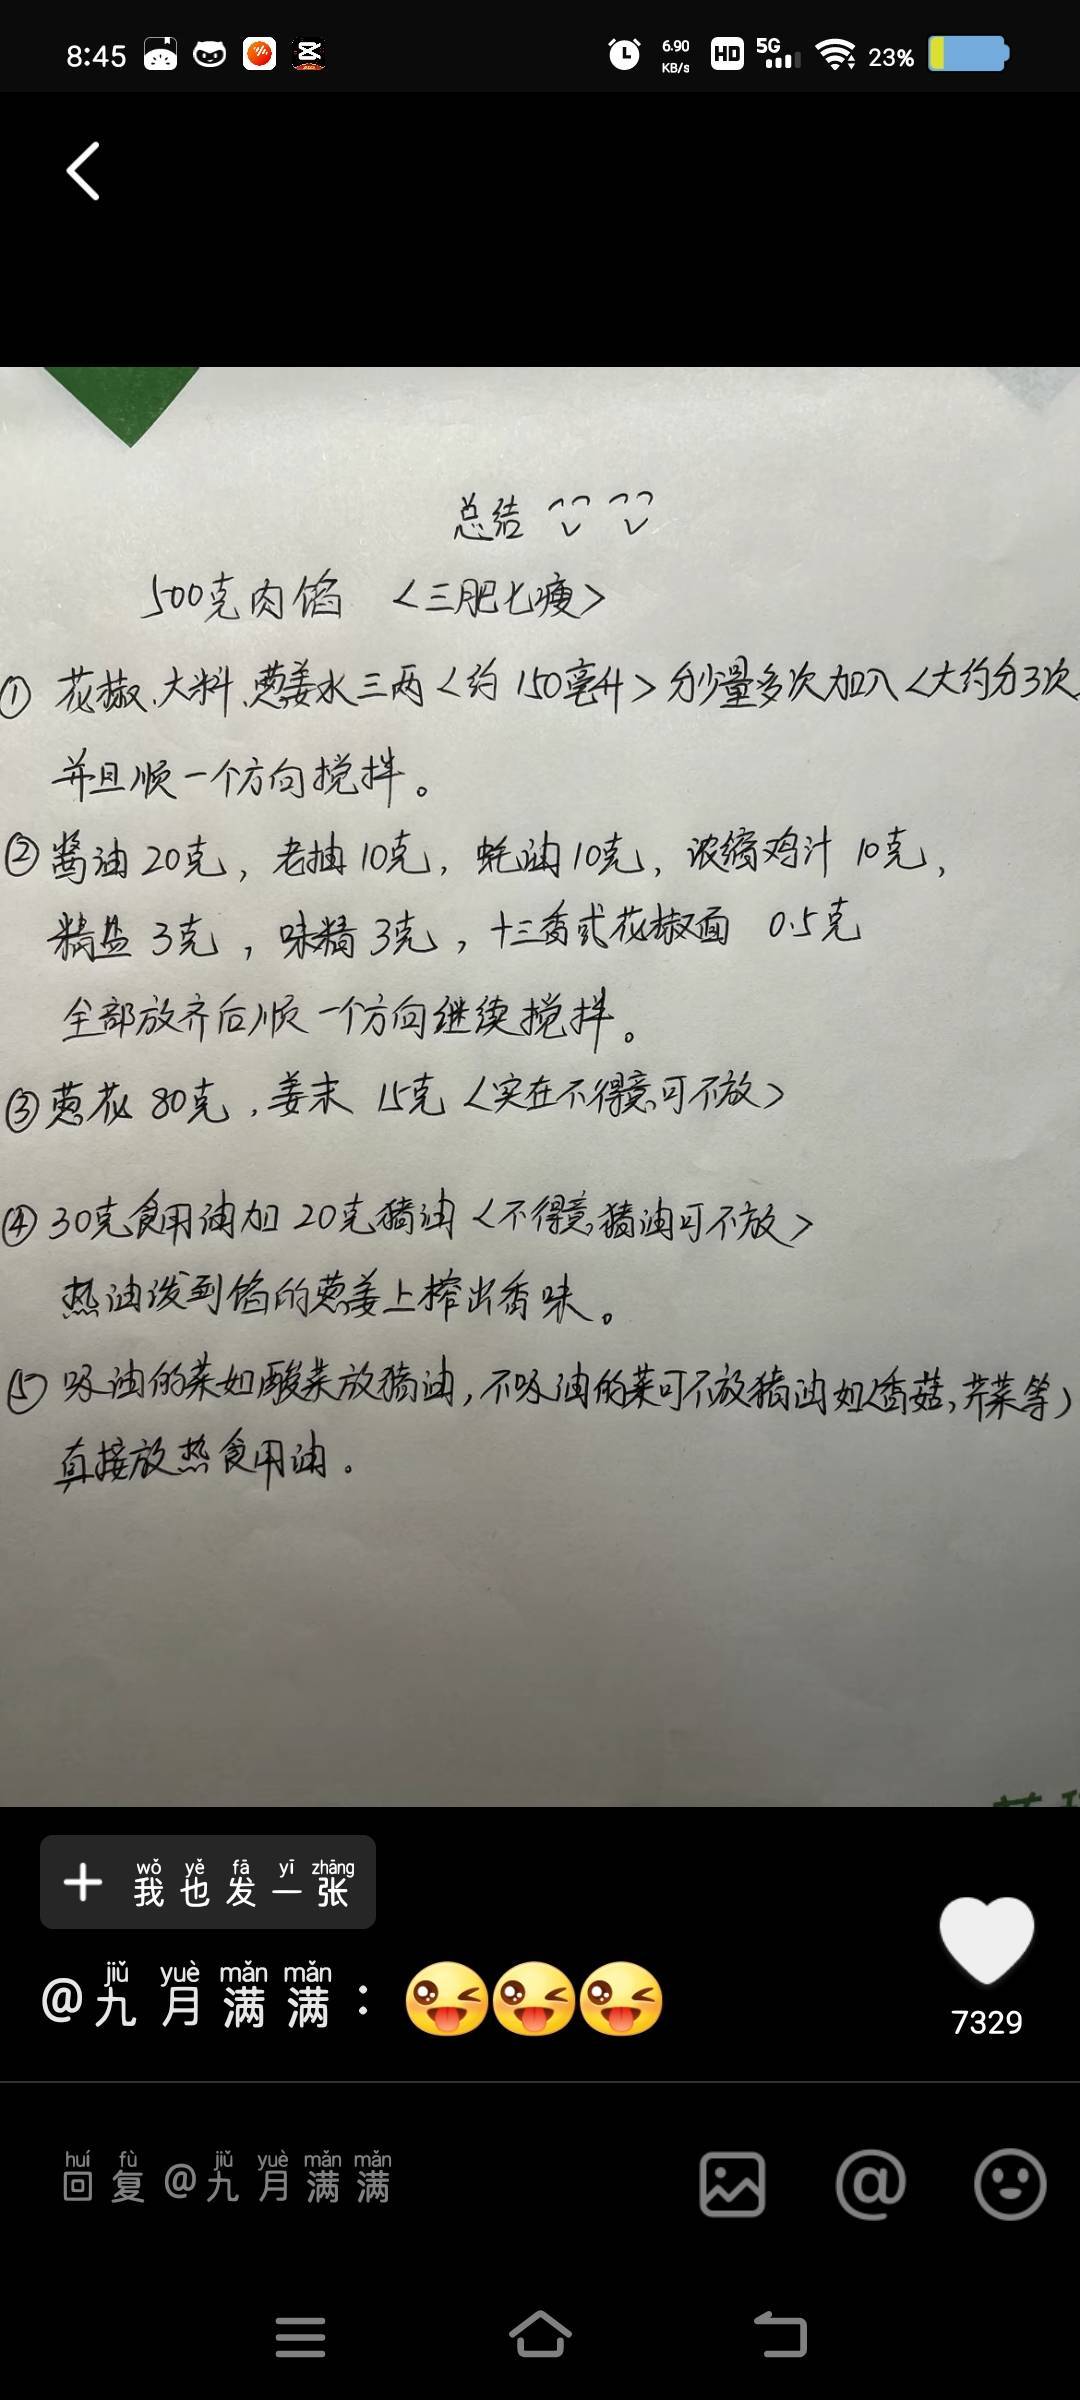 8:45
6.90
KB/s
HD
5G
23%
总结
500克肉馅 <三肥七瘦>
① 花椒、大料、葱姜水三两<约150毫升>分少量多次加入<大约分3次
并且顺一个方向搅拌。
② 酱油20克，老抽10克，蚝油10克，浓缩鸡汁10克，
精盐3克，味精3克，十三香或花椒面 0.5克
全部放齐后顺一个方向继续搅拌。
③ 葱花80克，姜末15克<实在不得意可不放>
④ 30克食用油加20克猪油<不得意猪油可不放>
热油泼到馅的葱姜上榨出香味。
⑤ 吸油的菜如酸菜放猪油，不吸油的菜可不放猪油如<香菇，芹菜等>
直接放热食用油。
wǒ yě fā yī zhāng
我也发一张
jiǔ yuè mǎn mǎn
@九月满满：
7329
huí fù jiǔ yuè mǎn mǎn
回复@九月满满
@